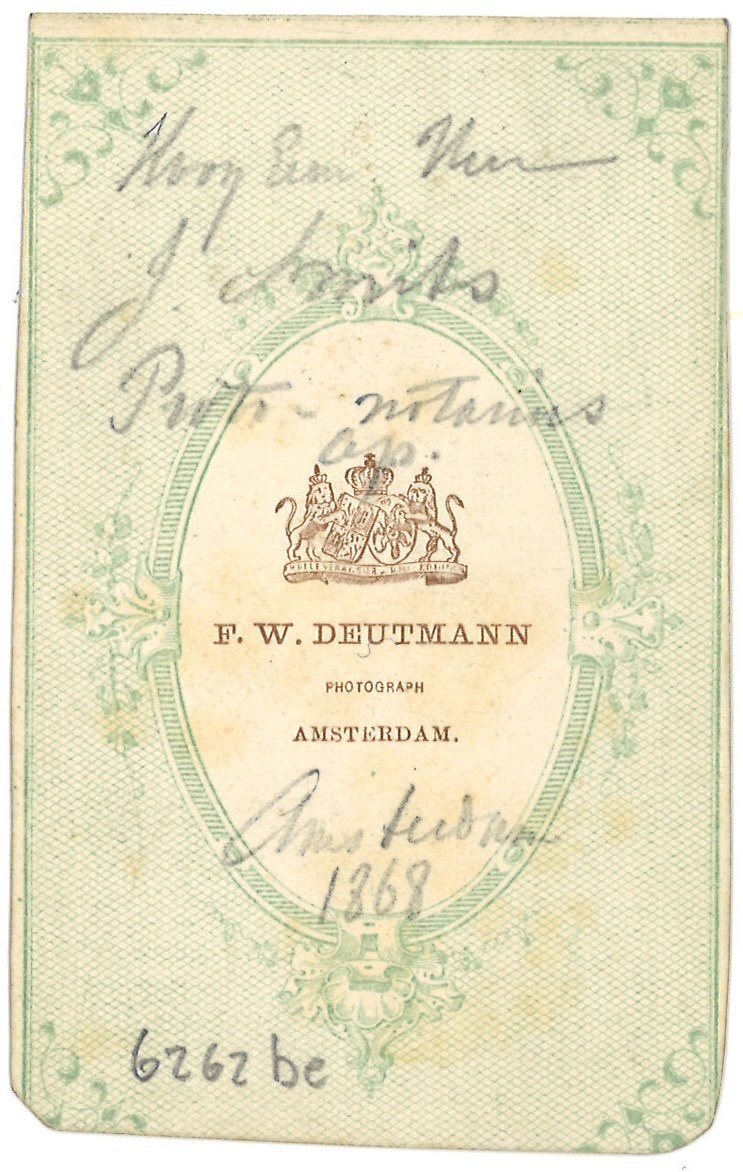 Hoog Eerw Heer
J. Smits
Proto-notarius
ap.
F. W. DEUTMANN
PHOTOGRAPH
AMSTERDAM.
Amsterdam
1868
6262 be